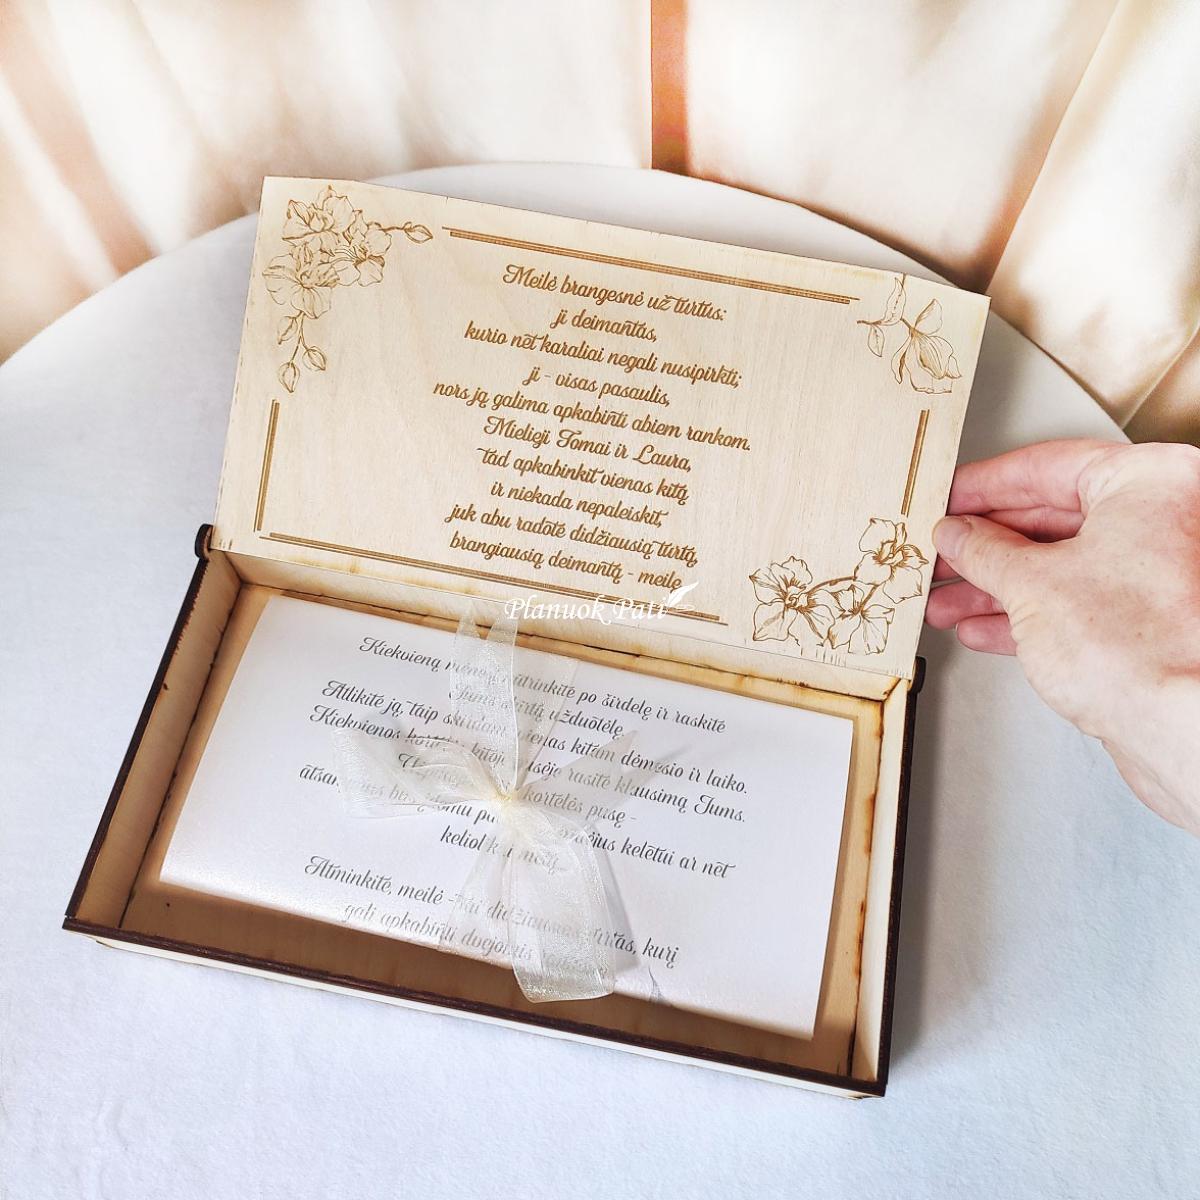 Meilė brangesnė už turtus:
ji deimantas,
kurio net karaliai negali nusipirkti;
ji - visas pasaulis,
nors ją galima apkabinti abiem rankom.
Mielieji Tomai ir Laura,
tad apkabinkit vienas kitą
ir niekada nepaleiskit,
juk abu radote didžiausią turtą,
brangiausią deimantą - meilę
Planuok Pati
Kiekvieną nutrinkite po širdelę ir raskite
Jums užduotėlę.
Atlikite ją, taip vienas kitam dėmesio ir laiko.
Kiekvienos kitoje pusėje rasite klausimą Jums.
kortelės pusę -
kelėtui ar net
Atminkite, meilė - tai didžiausias turtas, kurį
gali apkabinti dvejomis